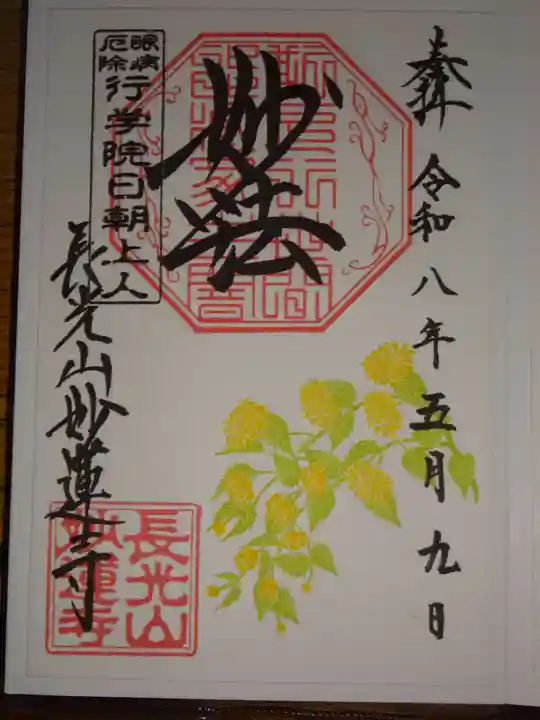 奉拝 令和八年五月九日
妙法
眼病
厄除
行学院日朝上人
長光山妙蓮寺
長光山
妙蓮寺